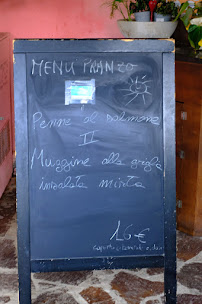 MENU PRANZO
Penne al salmone
II
Muggine alla griglia
insalata mista
10 €